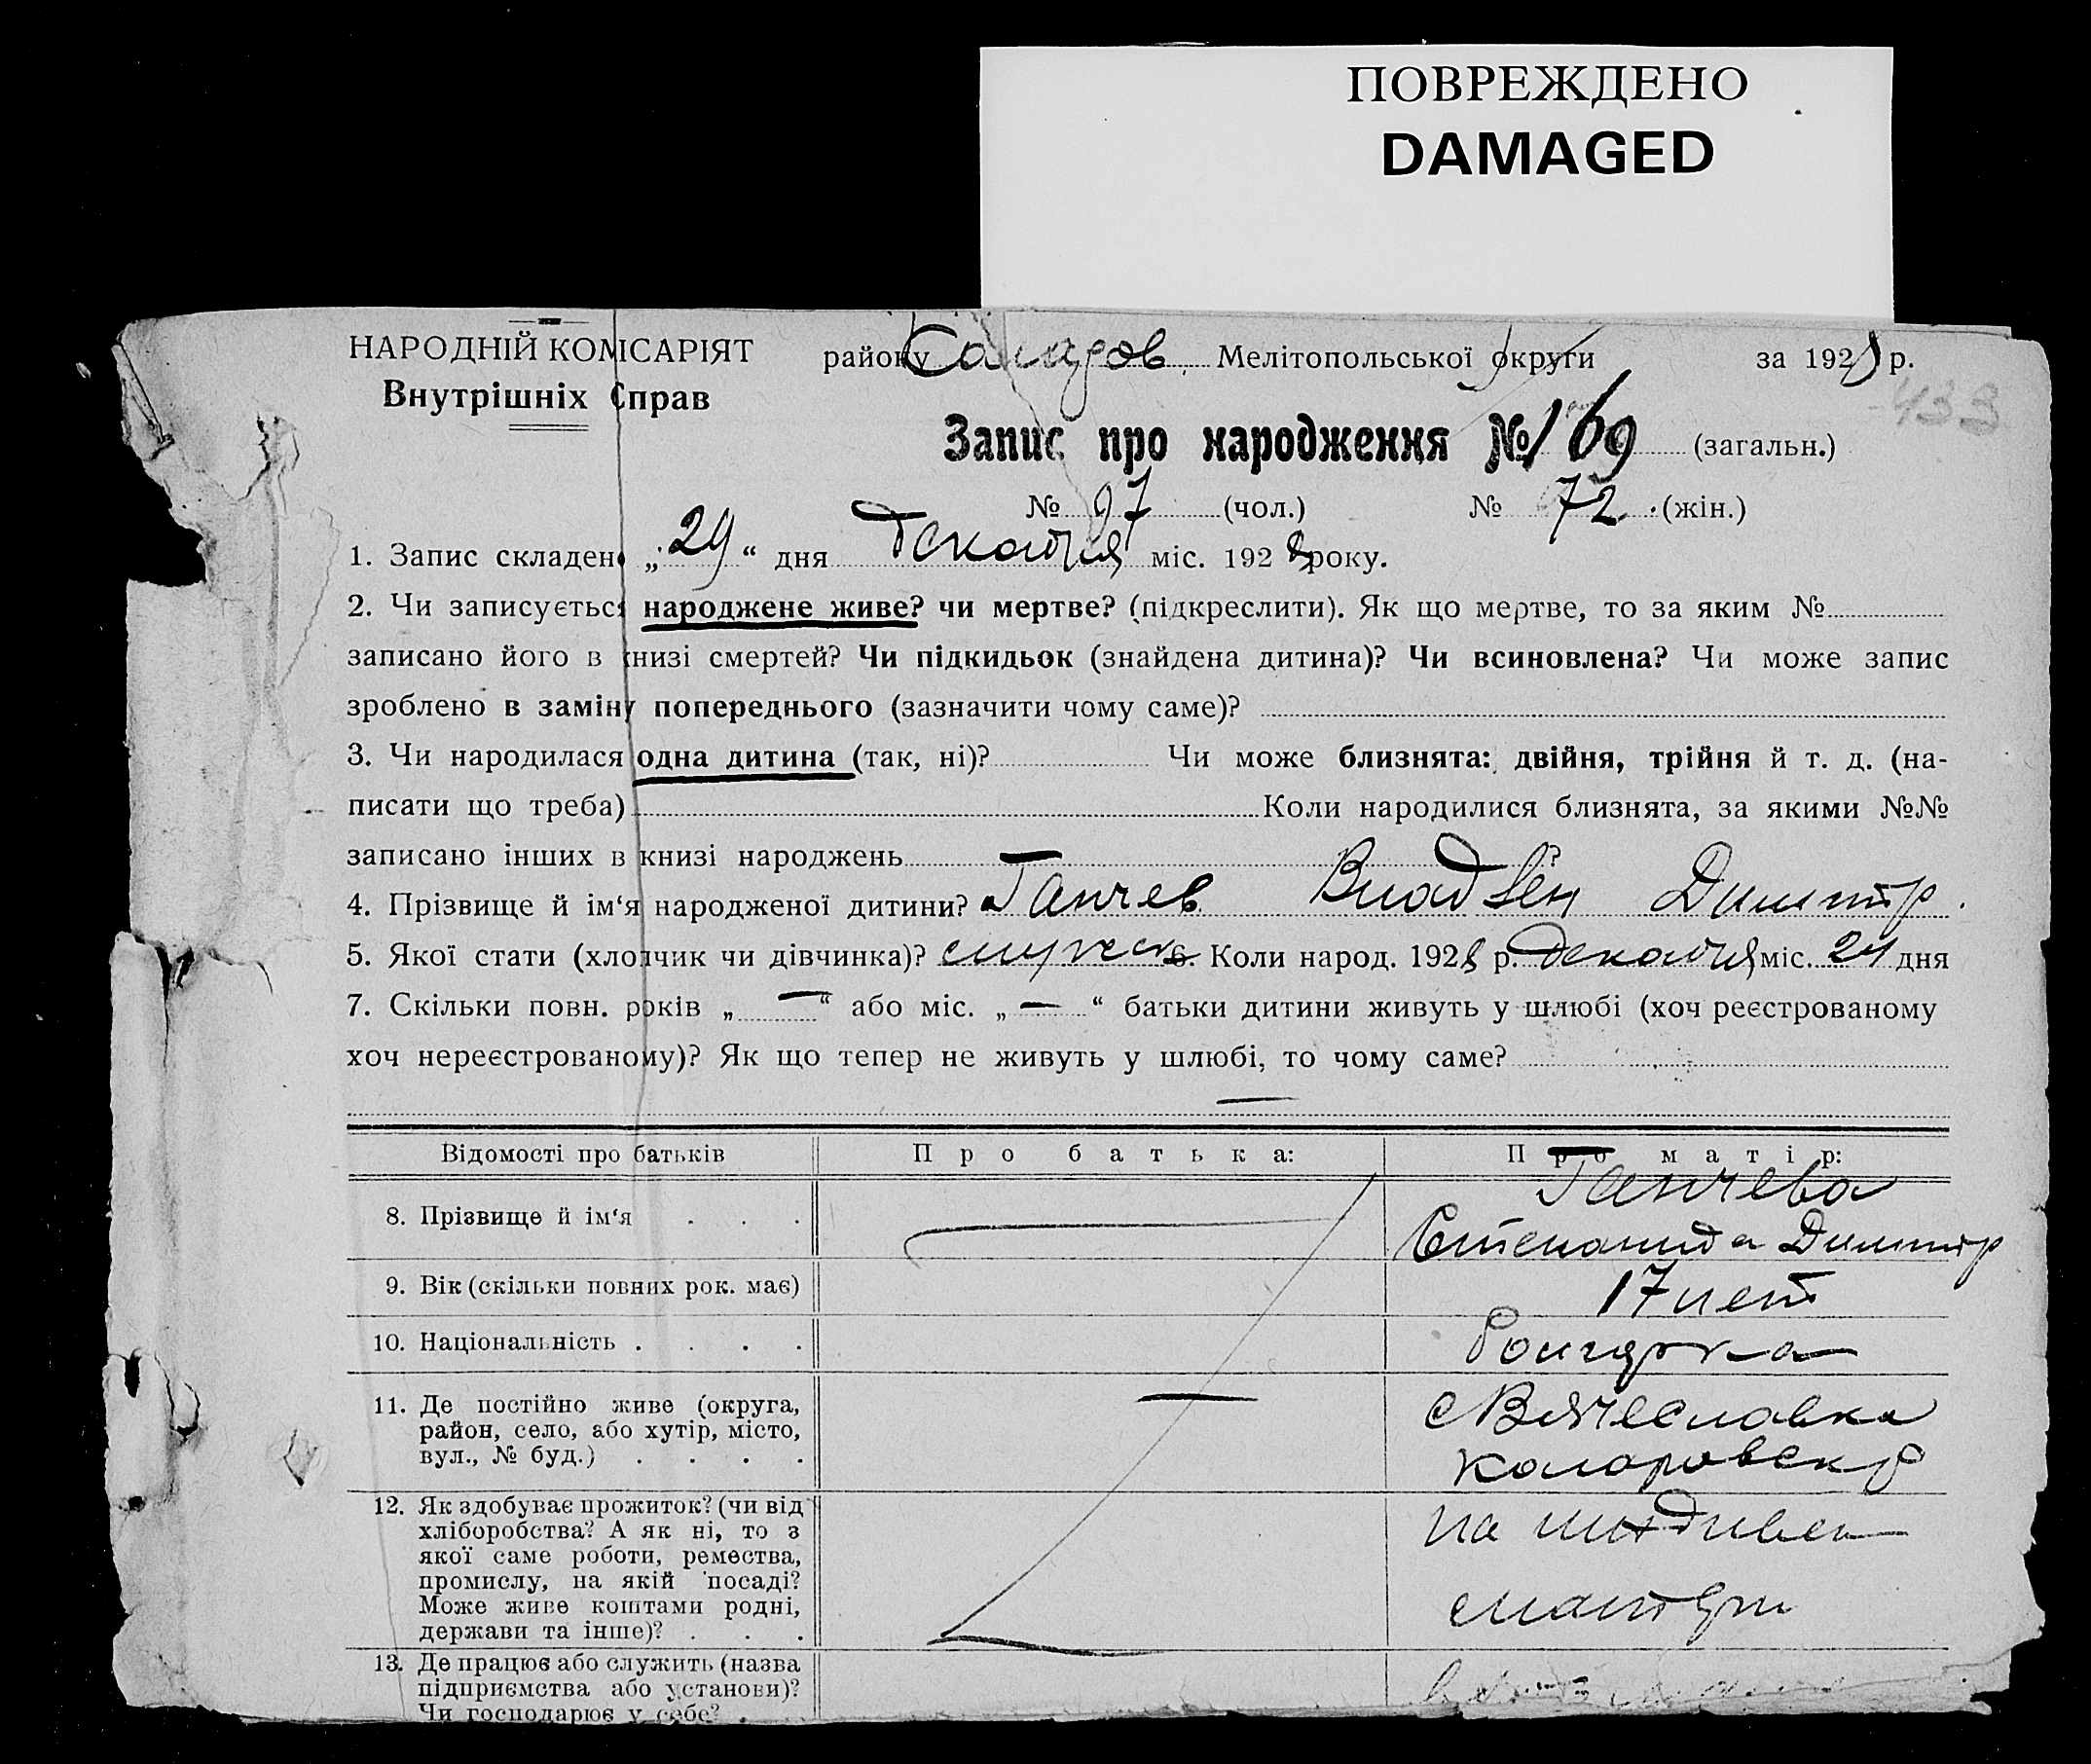 ПОВРЕЖДЕНО
DAMAGED
НАРОДНІЙ КОМІСАРІЯТ
Внутрішніх Справ
району Мелітопольської округи за 1928 р.
433
Запис про народження № 169 (загальн.)
№ 97 (чол.) № 72 (жін.)
1. Запис складено „29“ дня декабря міс. 1928 року.
2. Чи записується народжене живе? чи мертве? (підкреслити). Як що мертве, то за яким №
записано його в книзі смертей? Чи підкидьок (знайдена дитина)? Чи всиновлена? Чи може запис
зроблено в заміну попереднього (зазначити чому саме)?
3. Чи народилася одна дитина (так, ні)? Чи може близнята: двійня, трійня й т. д. (на-
писати що треба) Коли народилися близнята, за якими №№
записано інших в книзі народжень
4. Прізвище й ім‘я народженої дитини? Ганчев Димитр.
5. Якої стати (хлопчик чи дівчинка)? мужск 6. Коли народ. 1928 р. декабря міс. 24 дня
7. Скільки повн. років „ — “ або міс. „ — “ батьки дитини живуть у шлюбі (хоч реєстрованому
хоч нереєстрованому)? Як що тепер не живуть у шлюбі, то чому саме?
—
Відомості про батьків Про батька: Про матір:
8. Прізвище й ім‘я . . . Ганчева
Степанида Димитр
9. Вік (скільки повних рок. має) 17 лет
10. Національність . . . . болгарка
11. Де постійно живе (округа,
район, село, або хутір, місто,
вул., № буд.) . . . . — с Вячеславка
Коларовск р
12. Як здобуває прожиток? (чи від
хліборобства? А як ні, то з
якої саме роботи, ремества,
промислу, на якій посаді?
Може живе коштами родні,
держави та інше)? . . . на иждивен
матери
13. Де працює або служить (назва
підприємства або установи)?
Чи господарює у себе? .